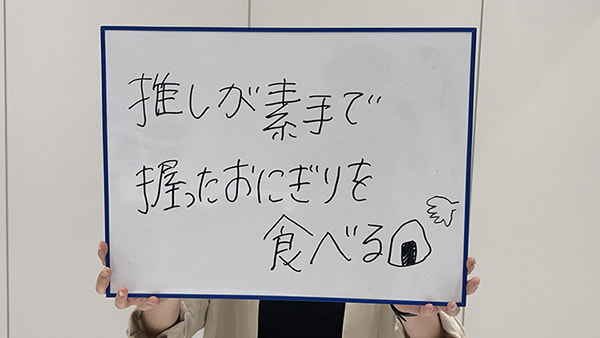 推しが素手で
握ったおにぎりを
食べる